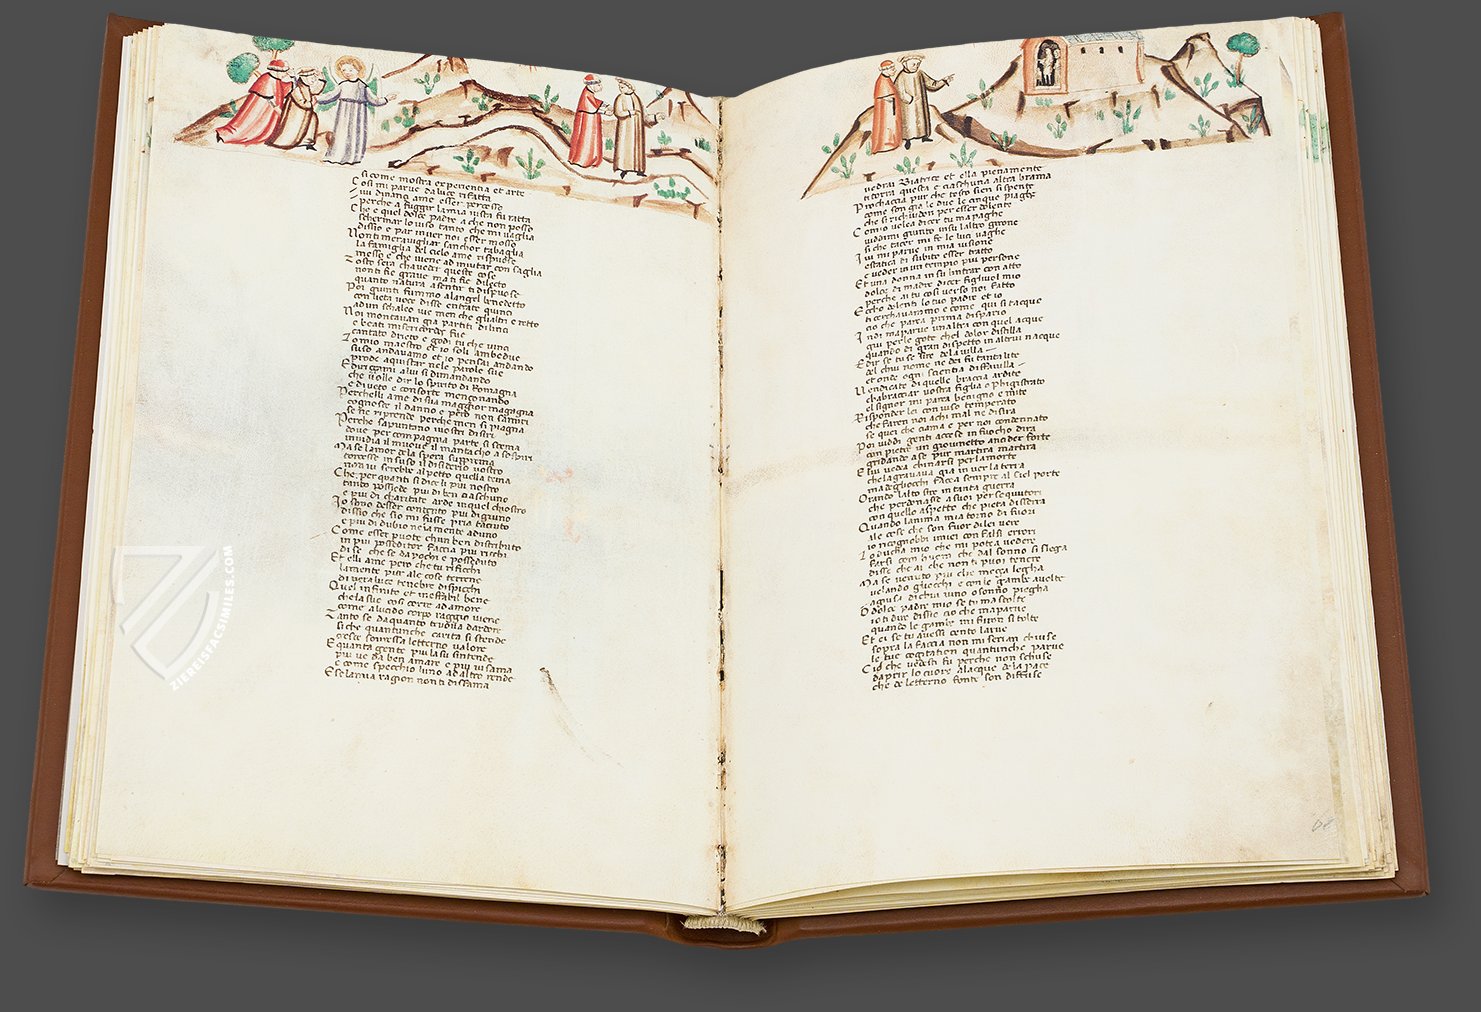 si come mostra experientia et arte
Cosi mi parve da luce rifatta
ivi dinanci a me esser percosso
perche a fuggir la mia vista fu ratta
Che e quel dolce padre a che non posso
schermar lo viso tanto che mi vaglia
dissio e par inver noi esser mosso
Non ti meravigliar sanchor tabaglia
la famiglia del cielo a me rispuose
messo e che viene ad invitar con saglia
Tosto sera cha veder queste cose
non ti fie grave ma ti fie dilecto
quanto natura a sentir ti dispuose
Poi giunti fummo alangel benedetto
con lieta voce disse entrate quinci
ad un schaleo vie men che glialtri eretto
Noi montavam gia partiti di linci
e beati misericordes fue
cantato drieto e godi tu che vinci
Lo mio maestro et io soli ambedue
suso andavamo et io pensai andando
prode aquistar nele parole sue
E diriççami a lui si dimandando
che volle dir lo spirito di Romagna
e divieto e consorte mençonando
Perchelli a me di sua maggior magagna
cognosce il danno e pero non samiri
se ne riprende perche men si piagna
Perche sapuntano i vostri disiri
dove per compagnia parte si scema
invidia il muove il mantacho a sospiri
Ma se lamor dela spera supprema
torcesse in suso il disiderio vostro
non vi serebbe al petto quella tema
Che per quanti si dice li piu nostro
tanto possede piu di ben ciaschuno
e piu di charitate arde in quel chiostro
Io sono desser contento piu digiuno
dissio che sio mi fusse pria taciuto
e piu di dubio nela mente aduno
Come esser puote chun ben distributo
in piu posseditor faccia piu ricchi
di se che se da pochi e posseduto
Et elli a me pero che tu rificchi
la mente pur ale cose terrene
di vera luce tenebre dispicchi
Quel infinito et ineffabil bene
che la sue cosi corre ad amore
come a lucido corpo raggio viene
Tanto se da quanto truova dardore
si che quantunche carita si stende
cresce sovressa letterno valore
E quanta gente piu la su sintende
piu ve da ben amare e piu vi sama
e come specchio luno ad altro rende
E se la mia ragion non ti disfama
vedrai Biatrice et ella pienamente
ti torra questa e ciaschuna altra brama
Prochaccia pur che tosto sien si spente
come son gia le due le cinque piaghe
che si richiudon per esser dolente
Comio volea dicer tu mapaghe
vidimi giunto in su laltro girone
si che tacer mi fe le luci vaghe
Ivi mi parve in una visione
estatica di subito esser tratto
e veder in un tempio piu persone
Et una donna in su lintrar con atto
dolce di madre dicer figliuol mio
perche ai tu cosi verso noi fatto
Eccho dolenti lo tuo padre et io
ti cerchavammo e come qui si tacque
cio che parea prima dispario
Indi maparve unaltra con quel acque
giu per le gote chel dolor distilla
quando di gran dispetto in altrui nacque
E dir se tu se sire dela villa
del chui nome ne dei fu tanta lite
et onde ogni scientia disfavilla
Vendicate di quelle braccia ardite
chabracciar vostra figlia o Phigistrato
el signor mi parea benigno e mite
Risponder lei con viso temperato
che faren noi achi mal ne disira
se quei che ciama e per noi condennato
Poi viddi genti accese in fuocho dira
con pietre un giovinetto ancider forte
gridando a se pur martira martira
E lui vedea chinarsi per la morte
che lagravava gia in ver la terra
ma degliocchi facea sempre al ciel porte
Orando lalto sire in tanta guerra
che perdonasse a suoi persequutori
con quello aspetto che pieta disserra
Quando lanima mia torno di fuori
ale cose che son fuor di lei vere
io ricognobbi i miei con falsi errori
Lo ducha mio che mi potea vedere
farsi com huom che dal sonno si slega
disse che ai che non ti puoi tenere
Ma se venuto piu che mezza leggha
velando gliocchi e con le gambe avolte
a guisa di chui vino o sonno piegha
O dolce padre mio se tu mascolte
io ti dire dissio cio che maparve
quando le gambe mi furon si tolte
Et ei se tu avessi cento larve
sopra la faccia non mi serian chiuse
le tue cogitation quantunche parve
Cio che vedesti fu perche non schuse
daprir lo cuore alacque dela pace
che de letterno fonte son diffuse
ZIEREISFACSIMILES.COM